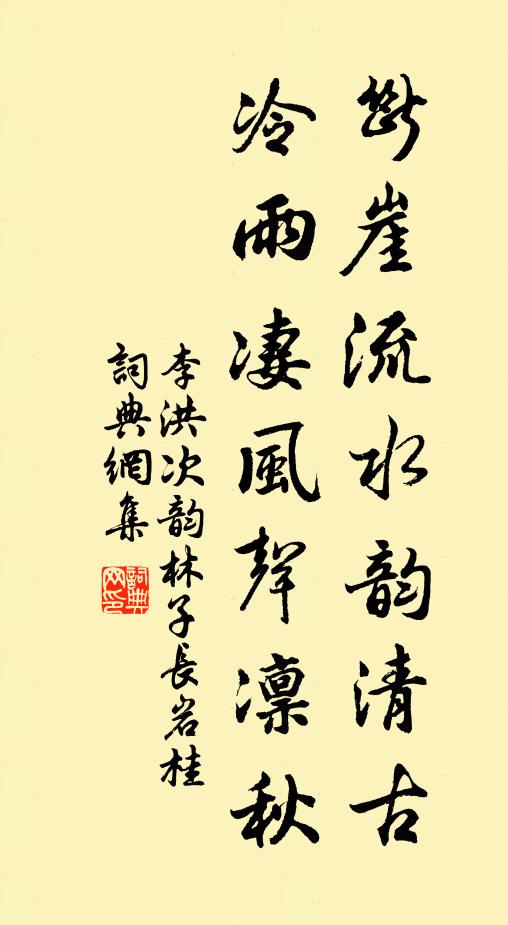 斷崖流水韵清古
冷雨凄風聲凛秋
李洪次韵林子長岩桂
詞典網集
詞典網印